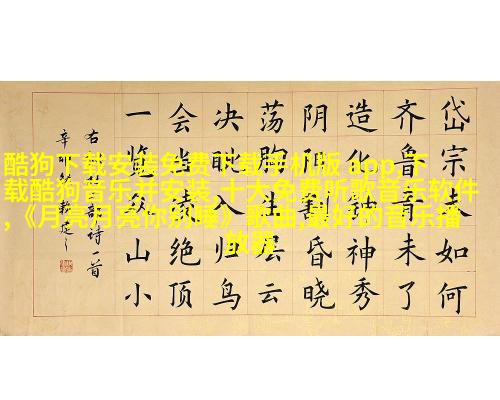 酷狗下载安装免费下载手机版 app,下
载酷狗音乐并安装,十大免费听歌音乐软件
,《月亮月亮你别睡》歌曲,最好的音乐播
放器
岱宗夫如何
齐鲁青未了
造化钟神秀
阴阳割昏晓
荡胸生层云
决眦入归鸟
会当凌绝顶
一览众山小
右诗一首
辛卯